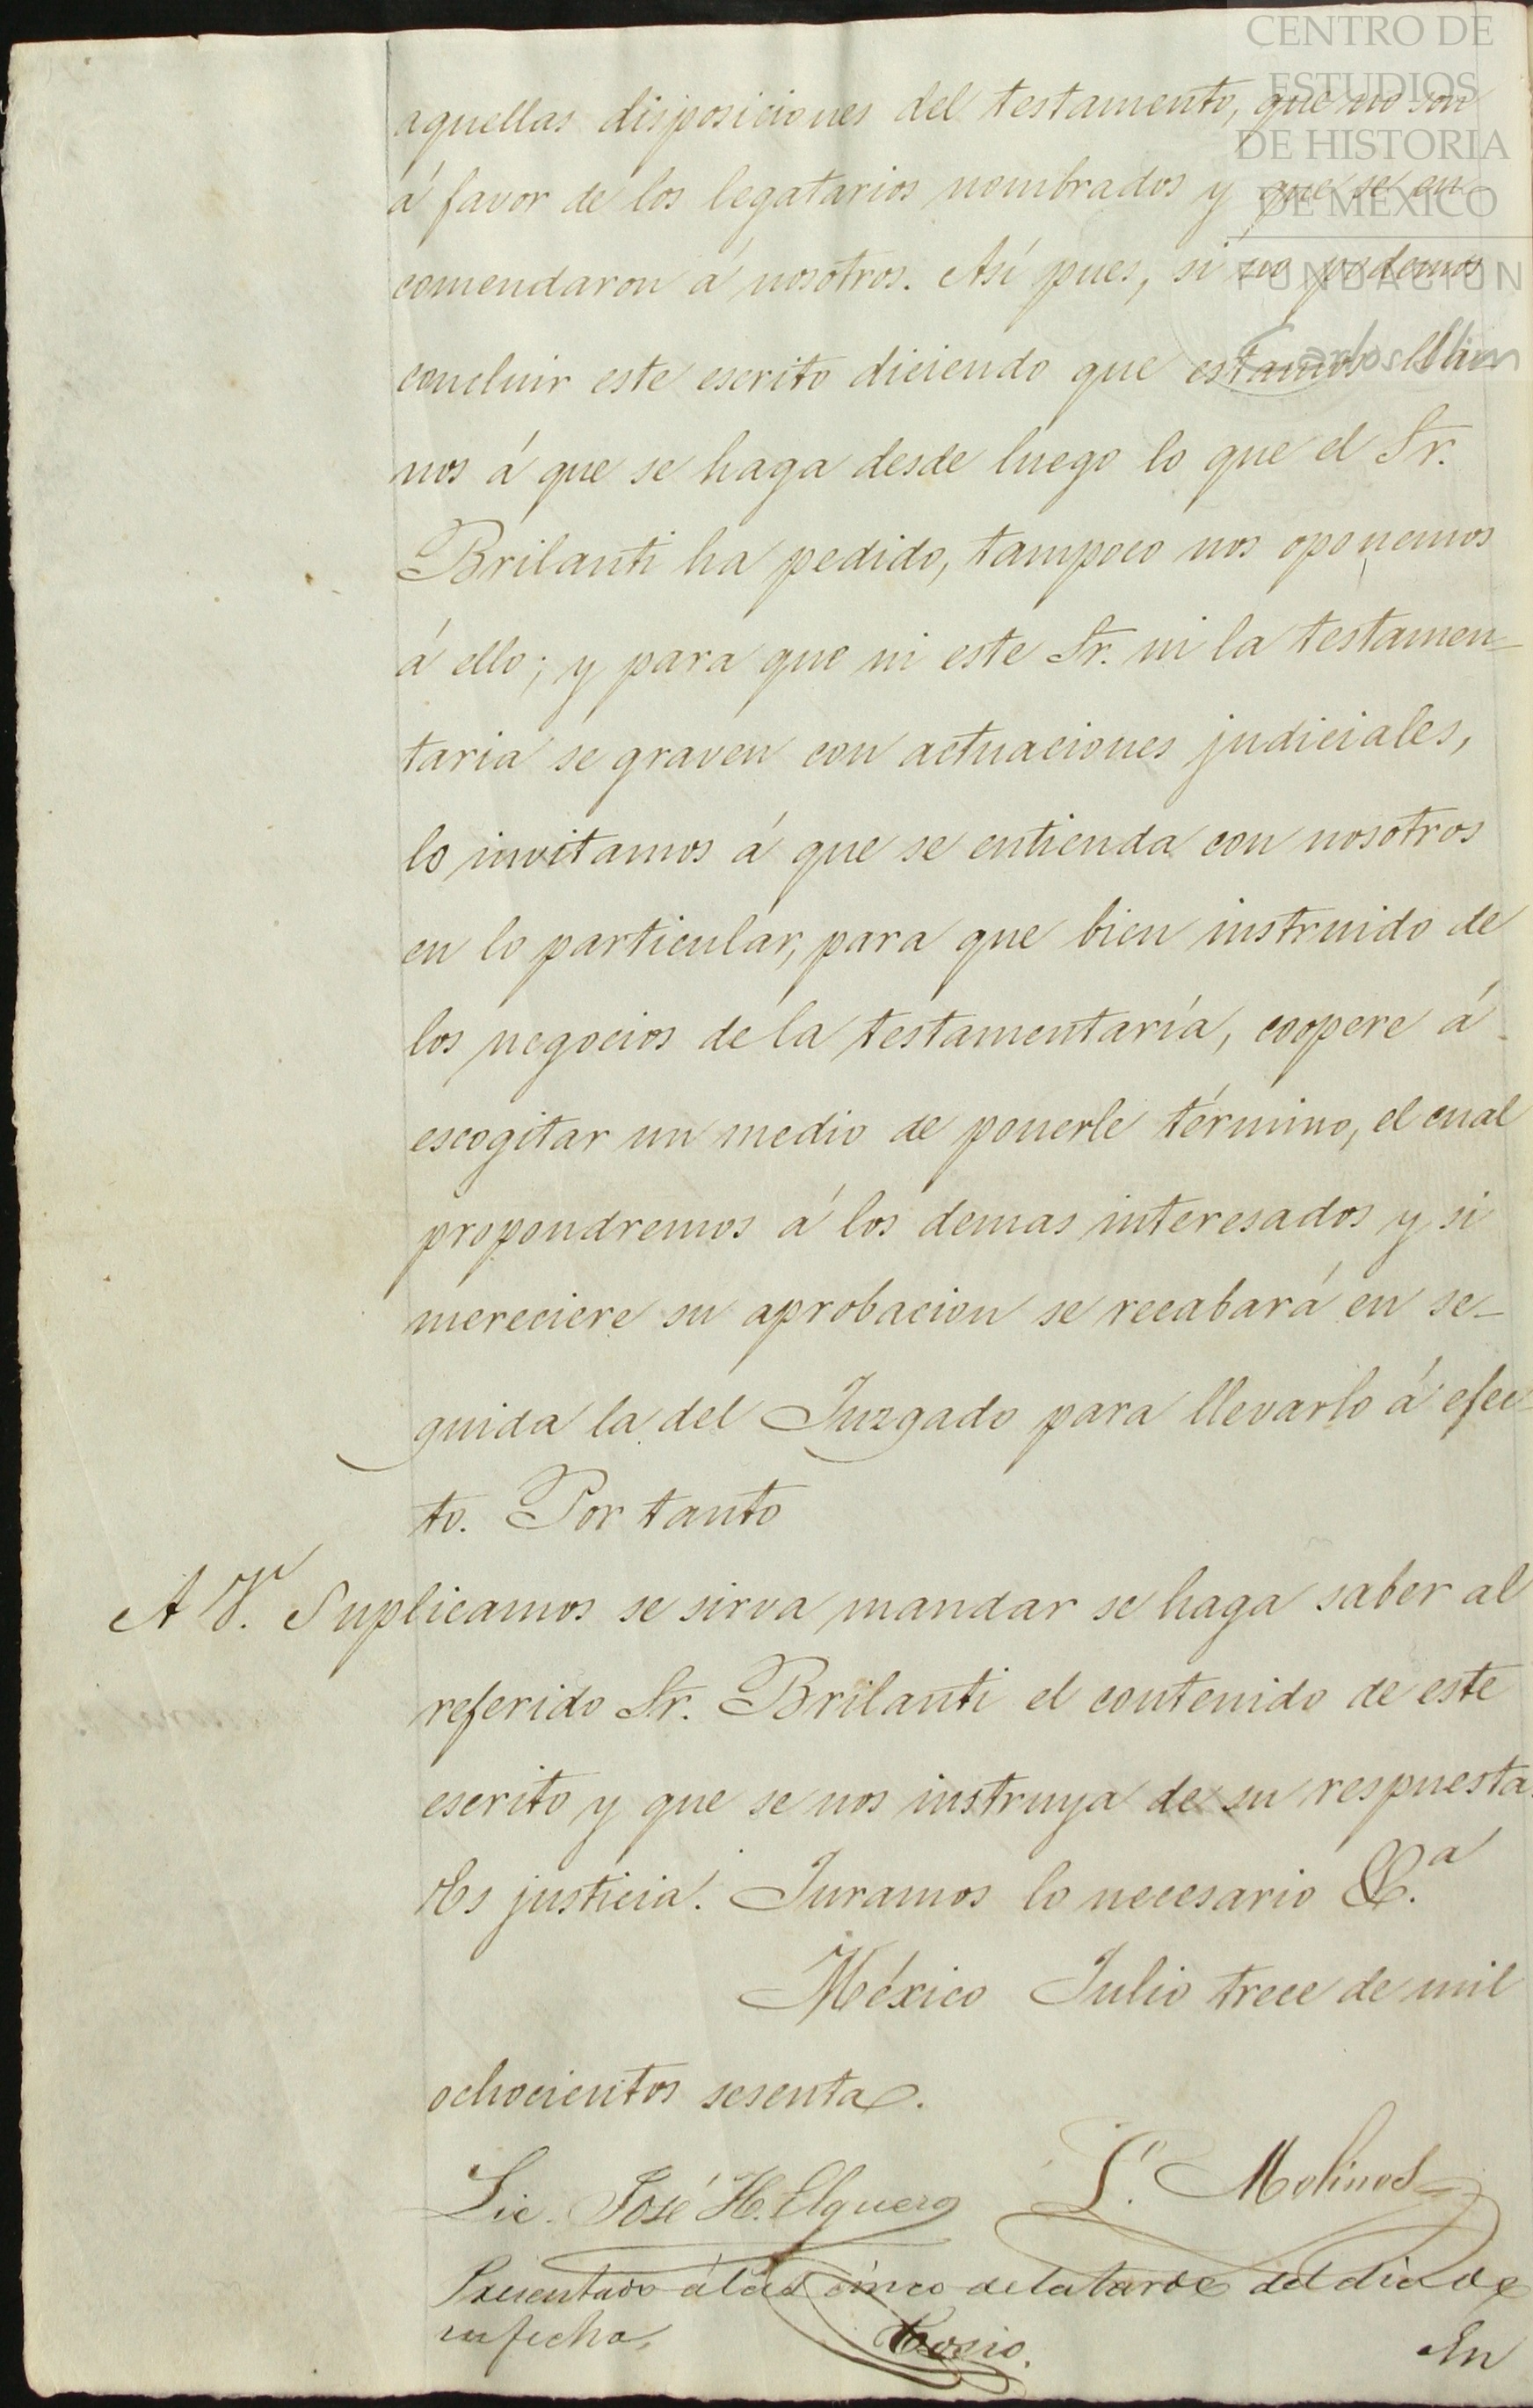 CENTRO DE
ESTUDIOS
DE HISTORIA
DE MÉXICO
FUNDACIÓN
Carlos Slim
aquellas disposiciones del testamento, que no son
á favor de los legatarios nombrados y que se en
comendaron á nosotros. Así pues, si no podemos
concluir este escrito diciendo que estamos llá
nos á que se haga desde luego lo que el Sr.
Brilanti ha pedido, tampoco nos oponemos
á ello; y para que ni este Sr. ni la testamen-
taria se graven con actuaciones judiciales,
lo invitamos á que se entienda con nosotros
en lo particular, para que bien instruido de
los negocios de la testamentaría, coopere á
escogitar un medio de ponerle término, el cual
propondremos á los demas interesados y si
mereciere su aprobacion se recabará en se-
guida la del Juzgado para llevarlo á efec-
to. Por tanto
A V. Suplicamos se sirva mandar se haga saber al
referido Sr. Brilanti el contenido de este
escrito y que se nos instruya de su respuesta.
Es justicia. Juramos lo necesario &.a
México Julio trece de mil
ochocientos sesenta.
Lic. José H. Elguero L. Molinos
Presentado á las cinco de la tarde del dia de
su fecha,
Cosio.
En